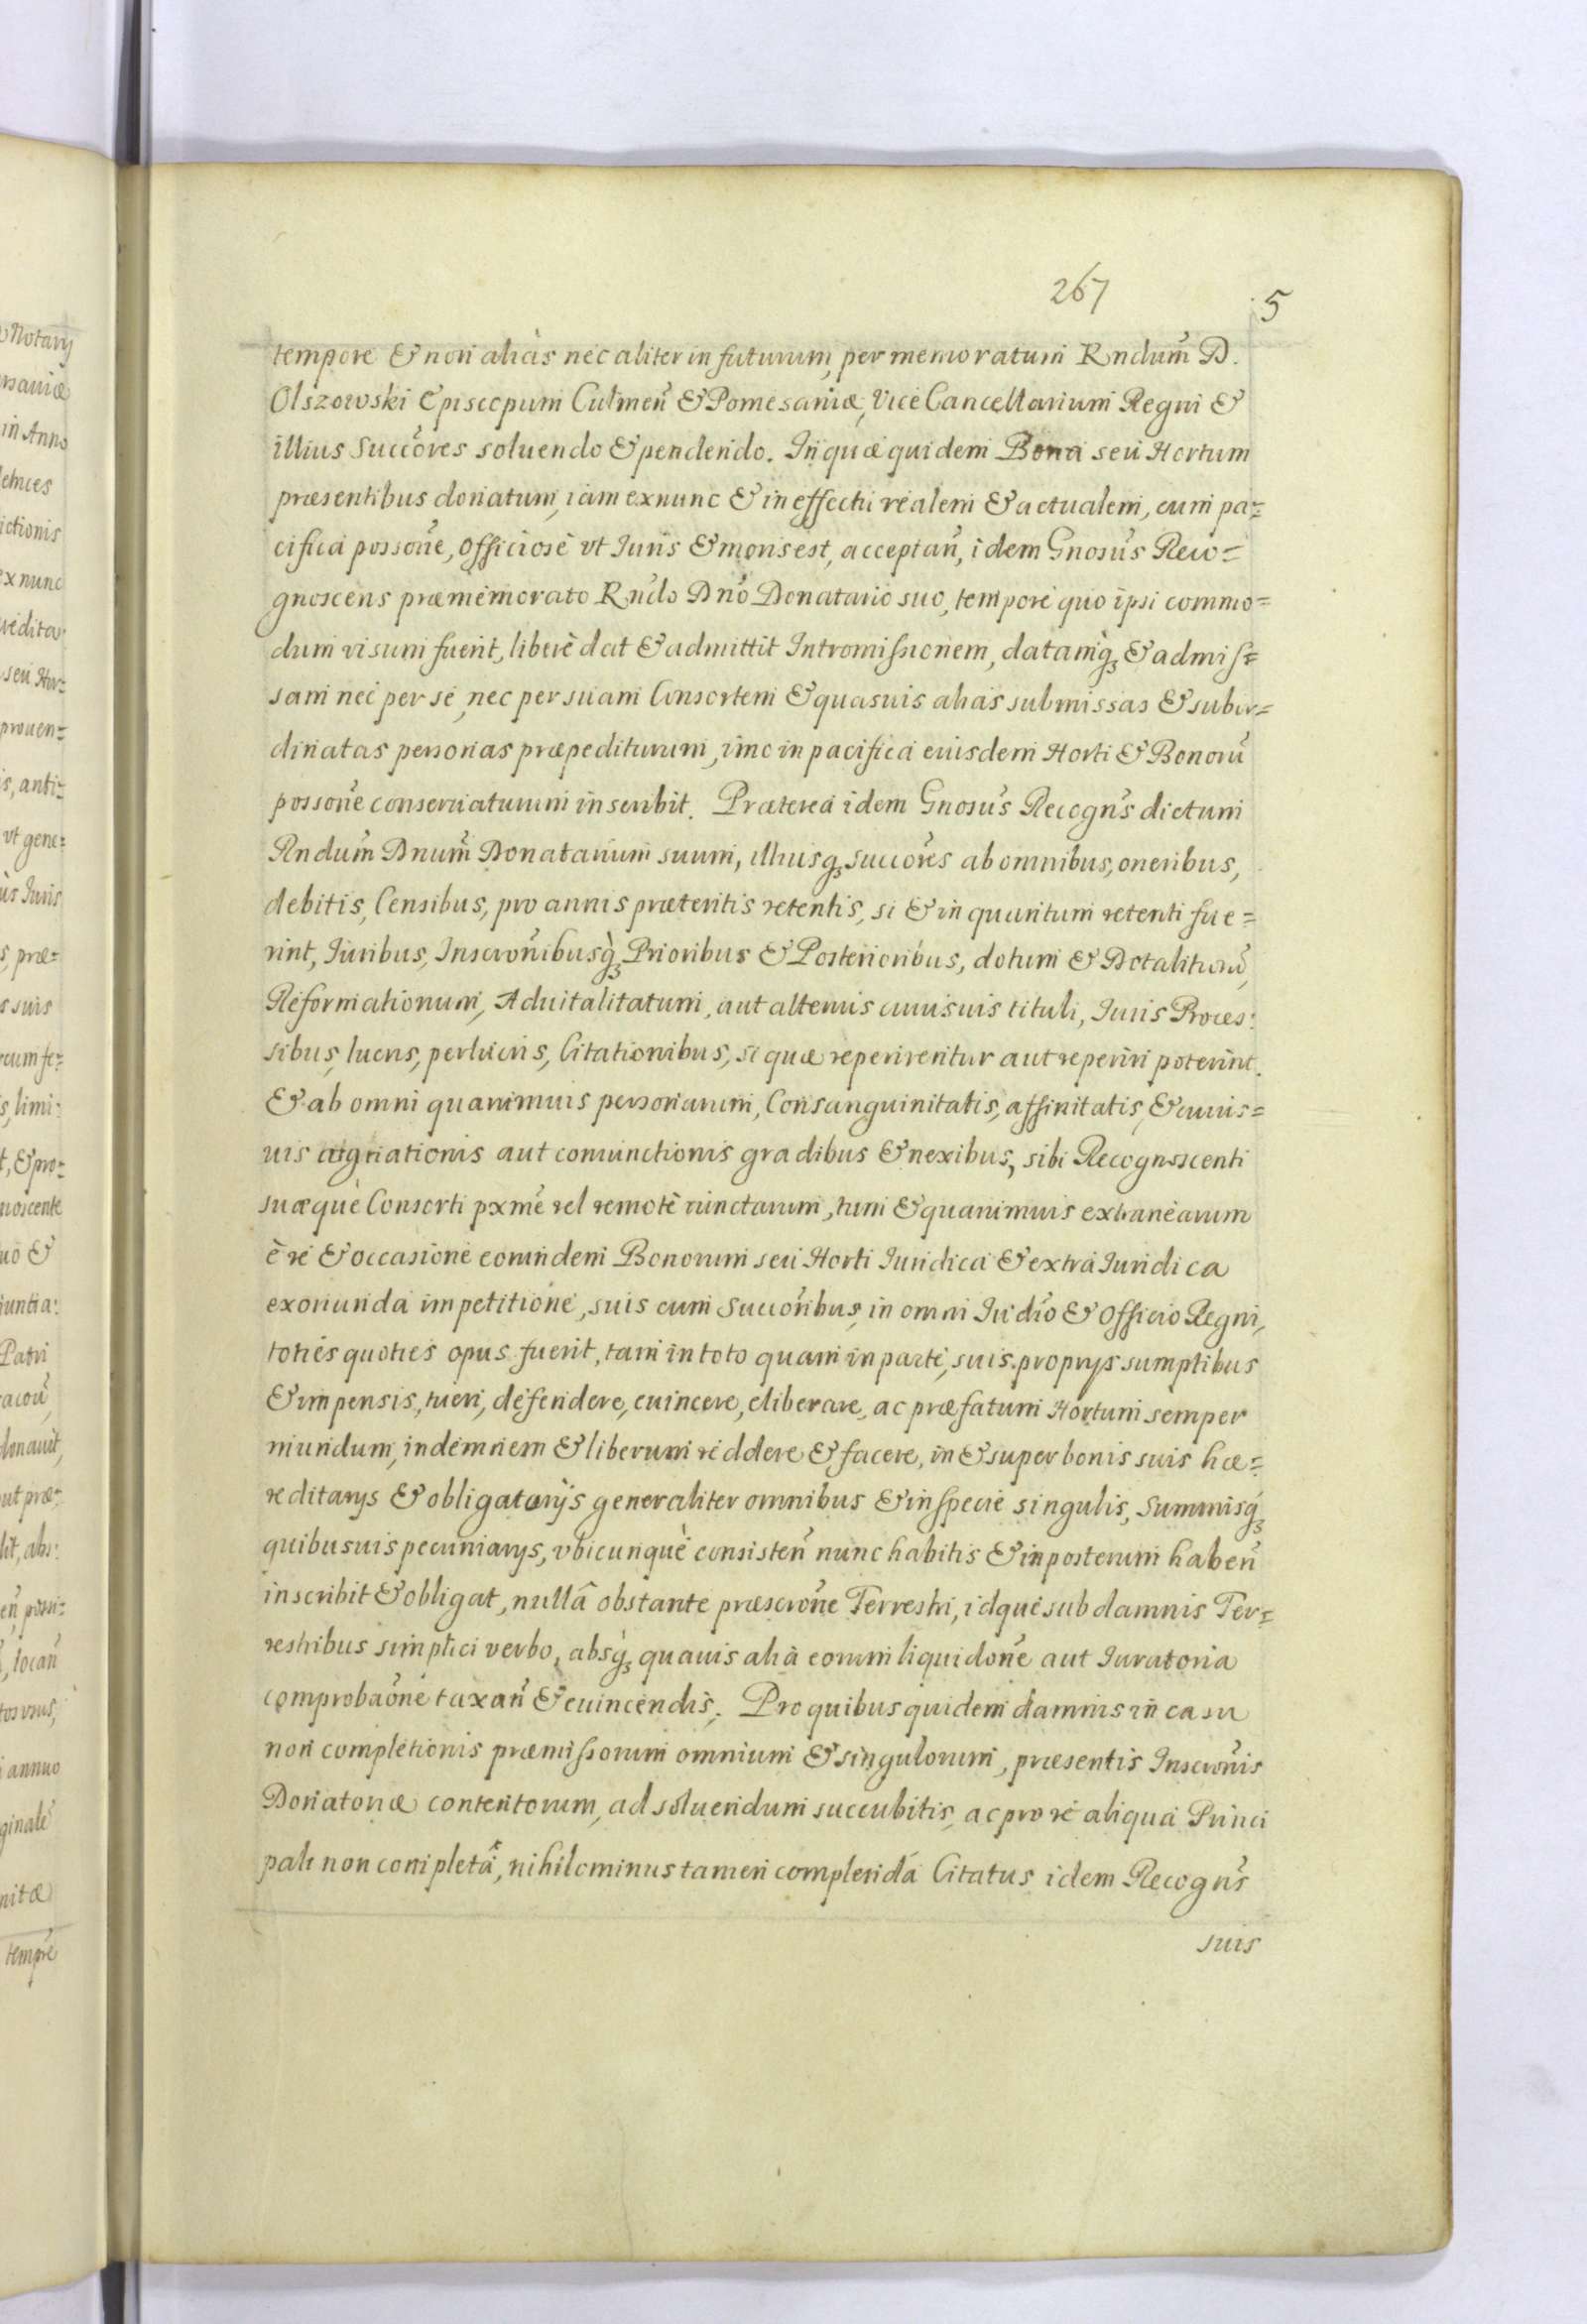 267
5
tempore & non aliàs nec aliter in futurum, per memoratum Rndum̃ D.
Olszowski Episcopum Culmeñ & Pomesaniæ, Vice Cancellarium Regni &
illius Succõres soluendo & pendendo. In quæ quidem Bona seu Hortum
præsentibus donatum, iam exnunc & in effectu realem & actualem, cum pa=
cifica possoñe, officiosè vt Iuris & moris est, acceptañ, idem Gnosũs Reco=
gnoscens præmemorato Rndo Dño Donatario suo, tempore quo ipsi commo=
dum visum fuerit, liberè dat & admittit Intromissionem, datamq̀ & admis=
sam nec per se, nec per suam Consortem & quasuis alias submissas & subor=
dinatas personas præpediturum, imo in pacifica eiusdem Horti & Bonorũ
possoñe conseruaturum inscribit. Præterea idem Gnosũs Recogñs dictum
Rndum̃ Dnum̃ Donatarium suum, illiusq succõres ab omnibus, oneribus,
debitis, Censibus, pro annis præteritis retentis, si & in quantum retenti fue=
rint, Iuribus, Inscroñibusq̀ Prioribus & Posterioribus, dotum & Dotalitiorũ,
Reformationum, Aduitalitatum, aut alterius cuiusuis tituli, Iuris Proces:
sibus, lucris, perlucris, Citationibus, si quæ reperirentur aut reperiri poterint.
& ab omni quarumuis personarum, Consanguinitatis, affinitatis, & cuius=
uis agnationis aut coniunctionis gradibus & nexibus, sibi Recognoscenti
suæquè Consorti pxmẽ vel remotè iunctarum, tum & quarumuis extranearum
è re & occasione eorundem Bonorum seu Horti Iuridica & extra Iuridica
exoriunda impetitione, suis cum Succõribus, in omni Iudĩo & Officio Regni,
toties quoties opus fuerit, tam in toto quam in parte, suis proprys sumptibus
& impensis, tueri, defendere, euincere, eliberare, ac præfatum Hortum semper
mundum, indemnem & liberum reddere & facere, in & super bonis suis hæ=
reditarys & obligatorys generaliter omnibus & in specie singulis, Summisq́
quibusuis pecuniarys, vbicunquè consisteñ nunc habitis & in posterum habeñ
inscribit & obligat, nullâ obstante præscroñe Terrestri, idque sub damnis Ter=
restribus simplici verbo, absq̀ quauis alia eorum liquidoñe aut Iuratoria
comprobaõne taxañ & euincendis. Pro quibus quidem damnis in casu
non completionis præmissorum omnium & singulorum, præsentis Inscroñis
Donatoriæ contentorum, ad soluendum succubitis, ac pro re aliqua Princi
pali non completa, nihilominus tamen complenda Citatus idem Recogñs
suis